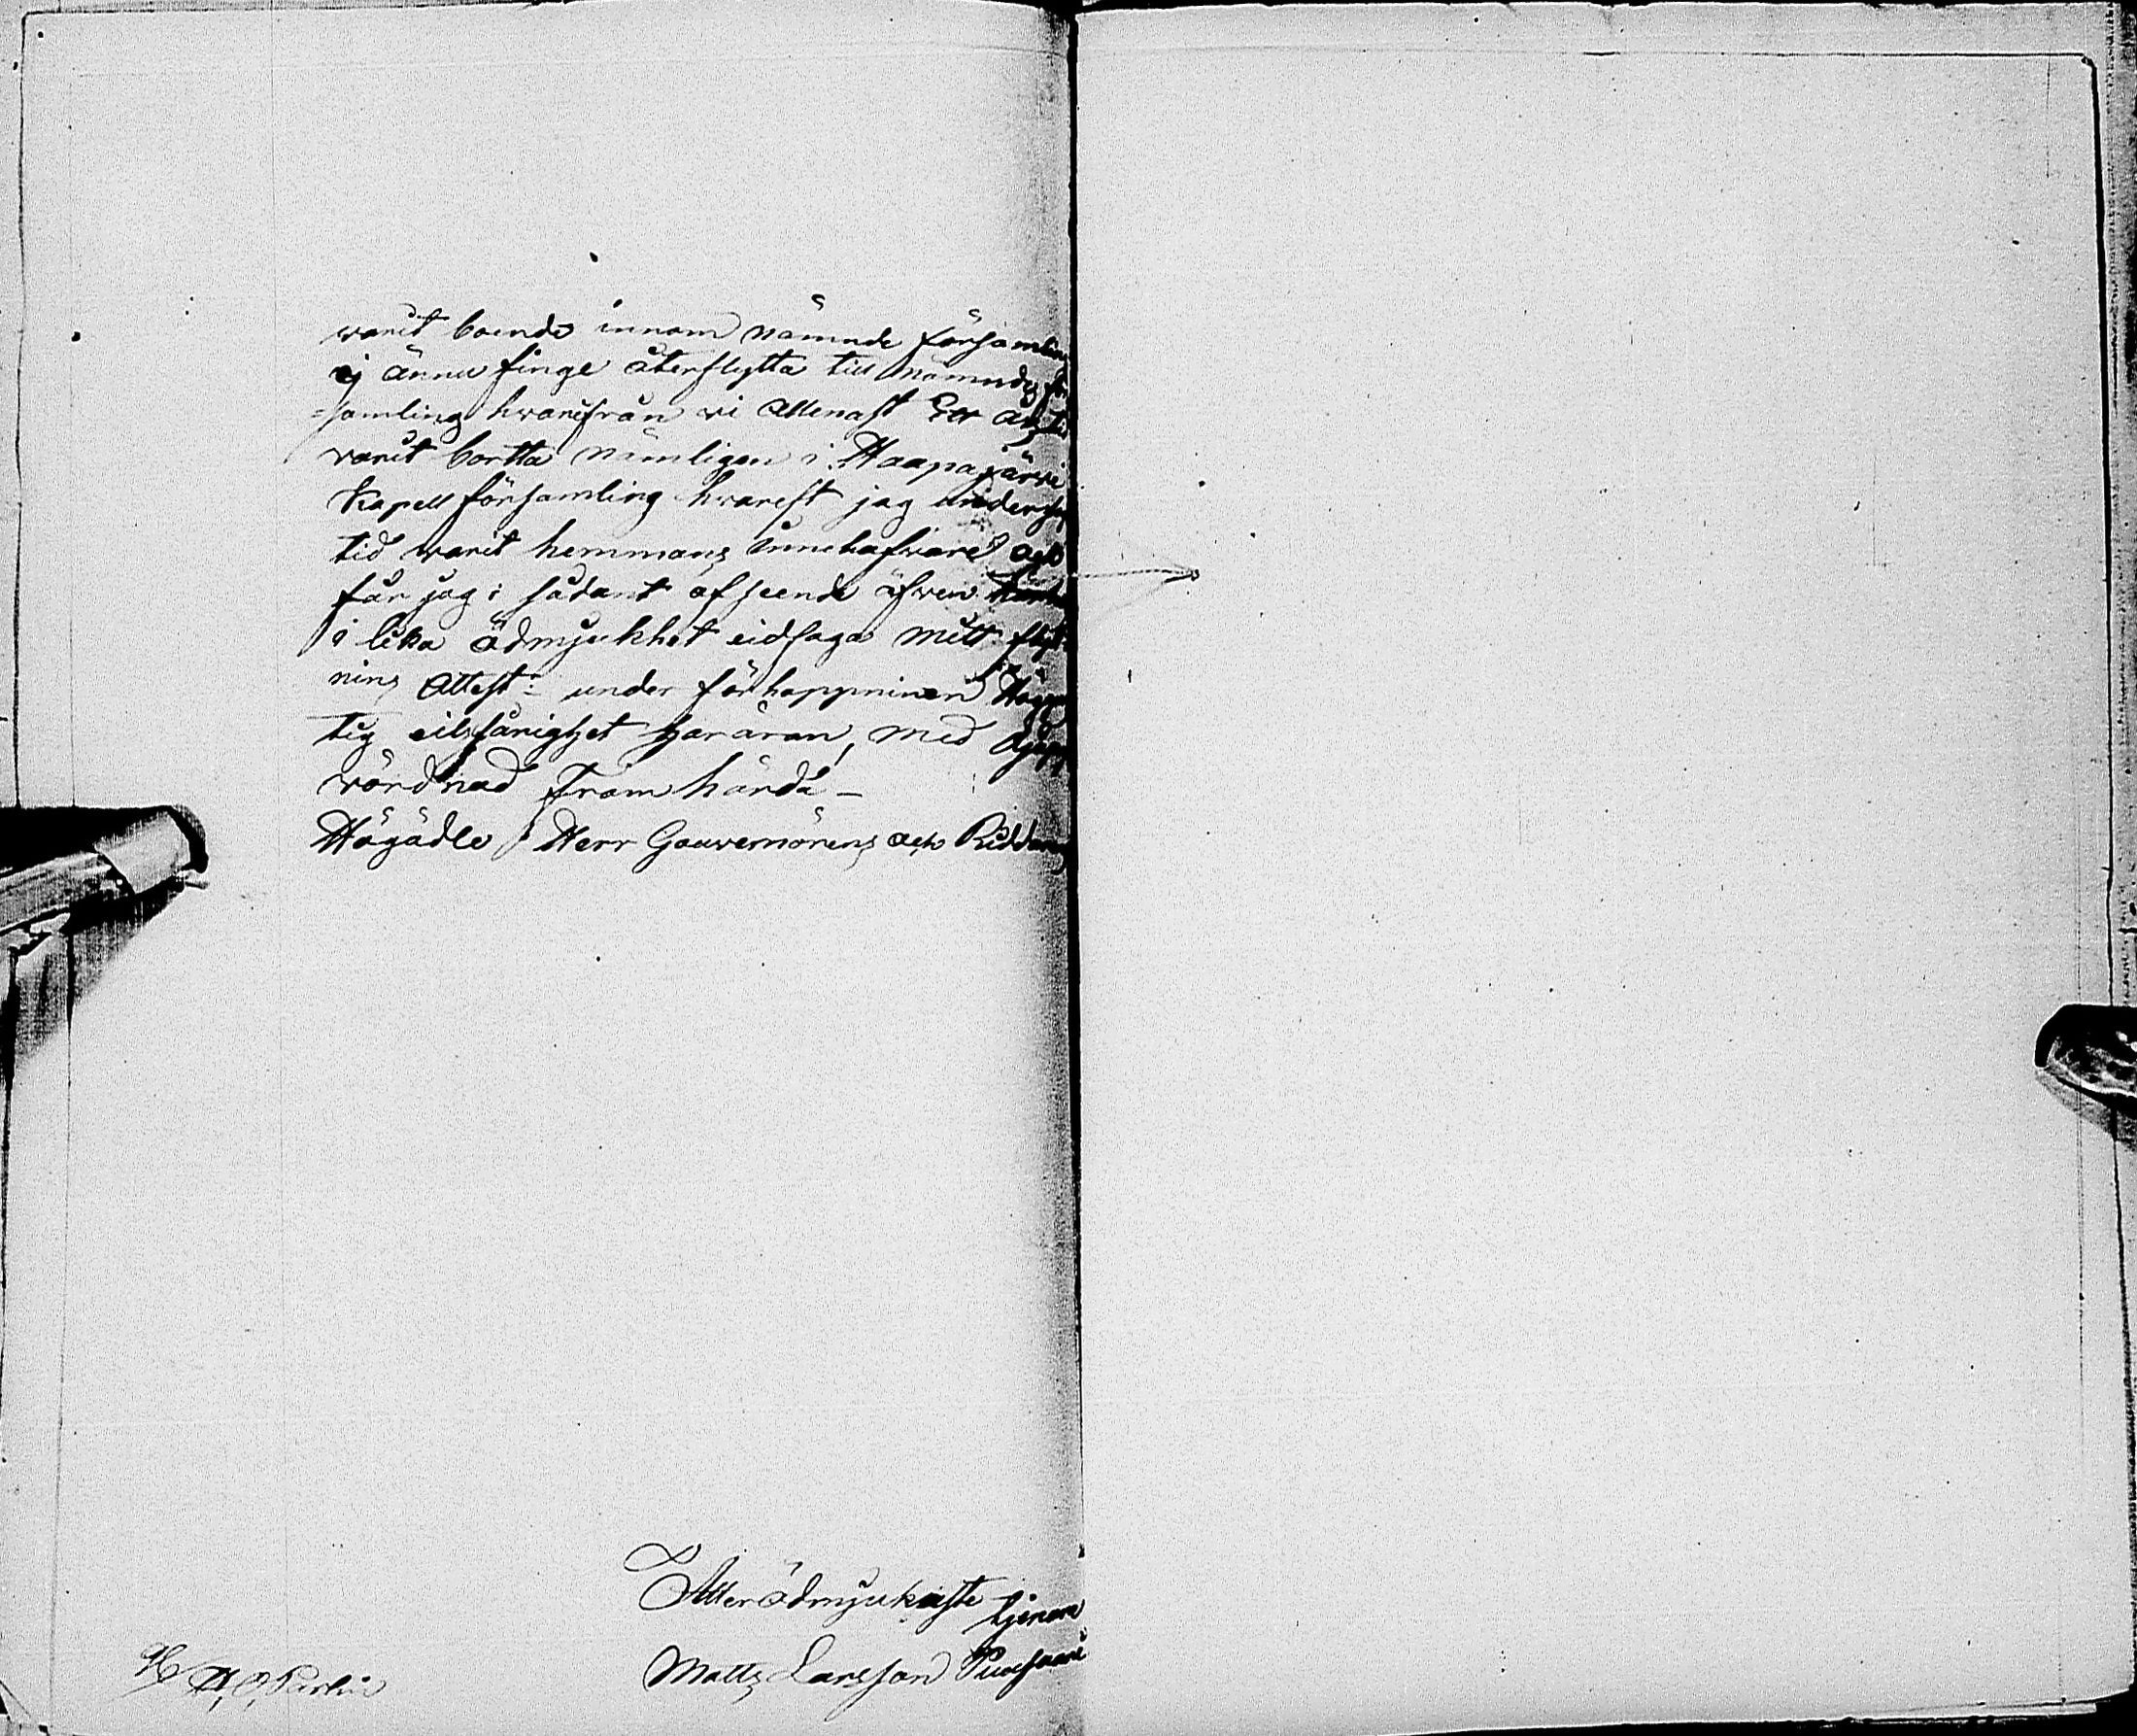 warit boende innom nämnde församling
ej ännu finge återflytta till nämnde för
=samling hvarifrån vi allenast Ett års tid
varit bortta nämligen i Haapajärvi
Kapell församling hvarest jag under
tid warit hemmans innehafvare och
får jag i sådant afseende äfven
i lika ödmjukhet vidfoga mitt flytt=
nings Attest: under förhoppningen
tig vilfärighet har äran, med djup
vördnad framhärda —
Högädle Herr Gouvernörens och Riddarens
Allerödmjukaste
tjenare
Matts Larsson